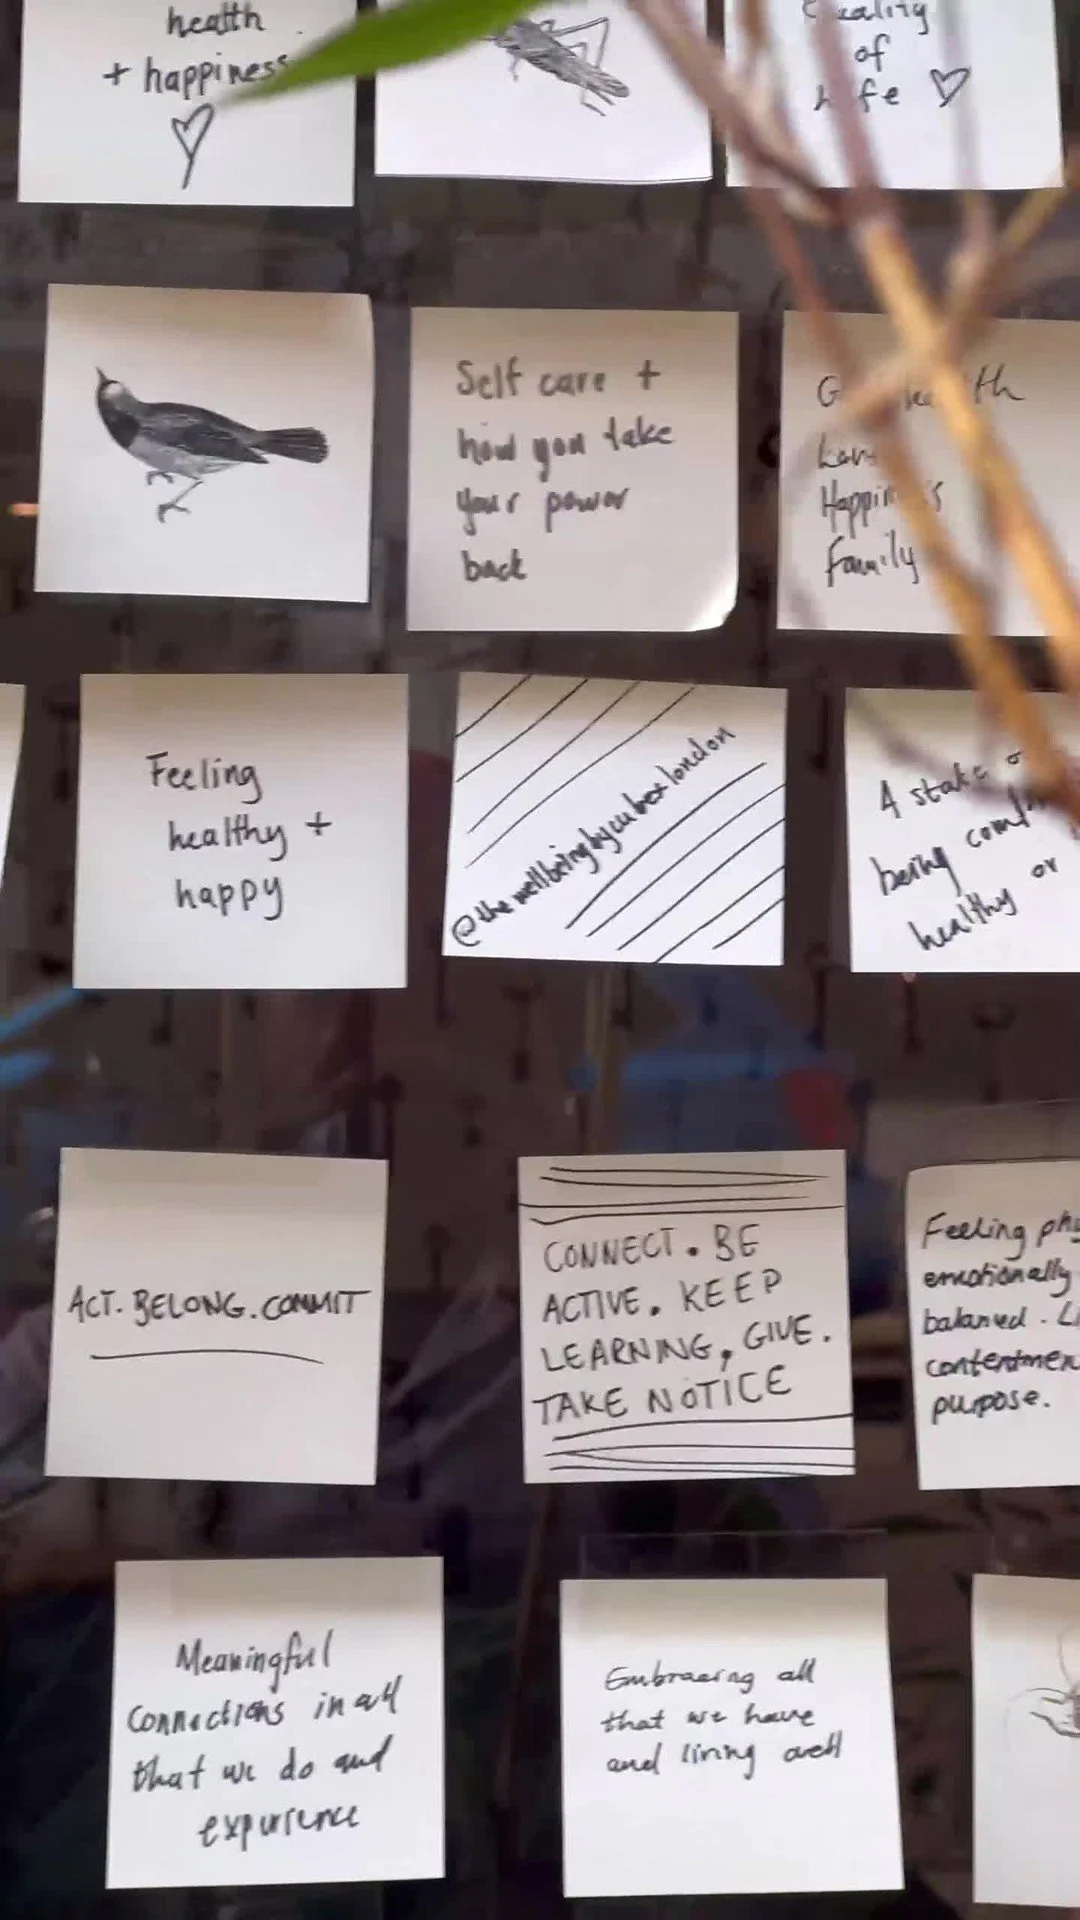 health
+ happiness
of
Self care +
how you take
your power
back
Happiness
family
Feeling
healthy +
happy
@thewellbeingbycubexlondon
A state
being
healthy or
ACT. BELONG. COMMIT
CONNECT. BE
ACTIVE. KEEP
LEARNING, GIVE.
TAKE NOTICE
Feeling
emotionally
balanced.
purpose.
Meaningful
connections in all
that we do and
experience
Embracing all
that we have
and living well